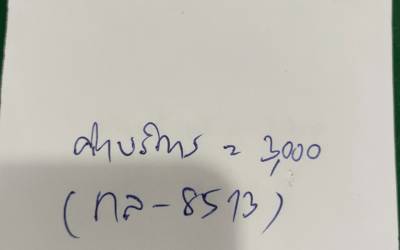 ค่าบริการ = 3,000
(ทล-8513)